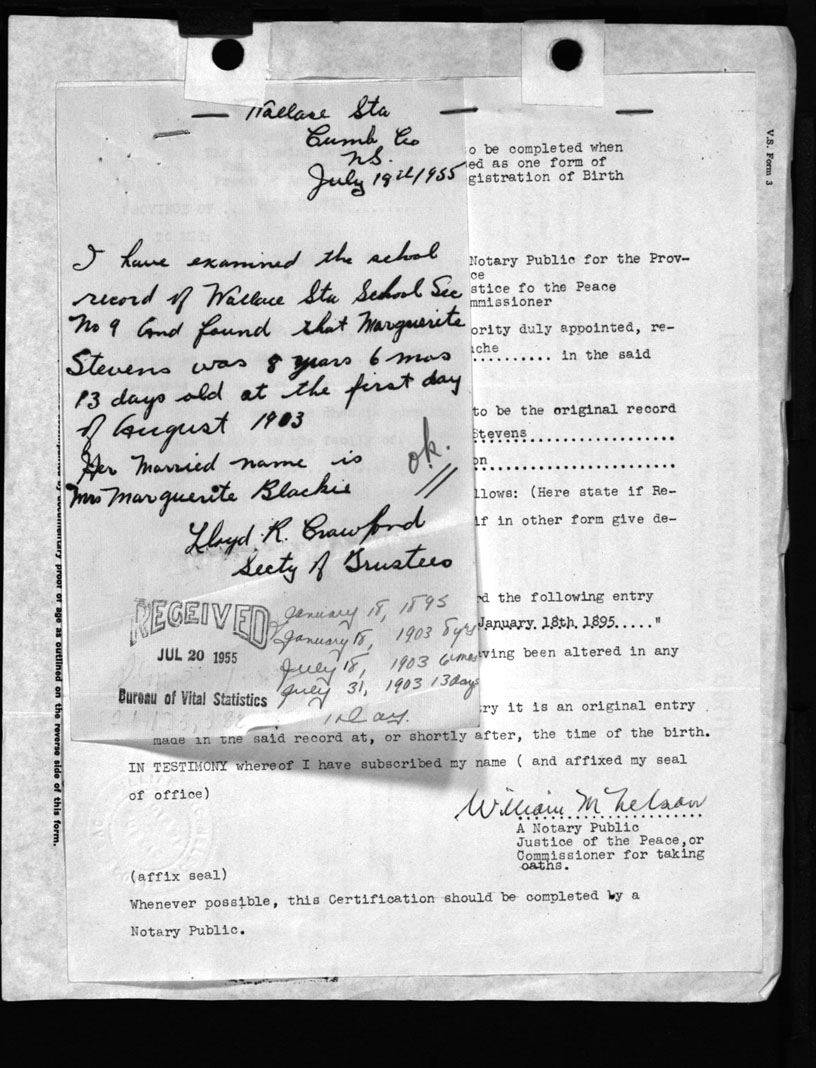 Wallace Sta
Cumb Co
N.S.
July 19th/1955
I have examined the school
record of Wallace Sta School Sec
No 9 And found that Marguerite
Stevens was 8 years 6 mos
13 days old at the first day
of August 1903
Her Married name is
Mrs Marguerite Blackie
ok.
Lloyd R. Crawford
Secty of Trustees
RECEIVED
JUL 20 1955
Bureau of Vital Statistics
January 18, 1895
January 18, 1903 8 yrs
July 18, 1903 6 mos
July 31, 1903 13 days
1 day.
V.S. Form 3
o be completed when
ed as one form of
gistration of Birth
Notary Public for the Prov-
ce
stice fo the Peace
mmissioner
ority duly appointed, re-
che
.......... in the said
to be the original record
Stevens
on
llows: (Here state if Re-
if in other form give de-
d the following entry
January 18th 1895....."
ving been altered in any
ry it is an original entry
made in the said record at, or shortly after, the time of the birth.
IN TESTIMONY whereof I have subscribed my name ( and affixed my seal
of office)
William M Nelson
A Notary Public
Justice of the Peace,or
Commissioner for taking
oaths.
(affix seal)
Whenever possible, this Certification should be completed by a
Notary Public.
by documentary proof of age as outlined on the reverse side of this form.